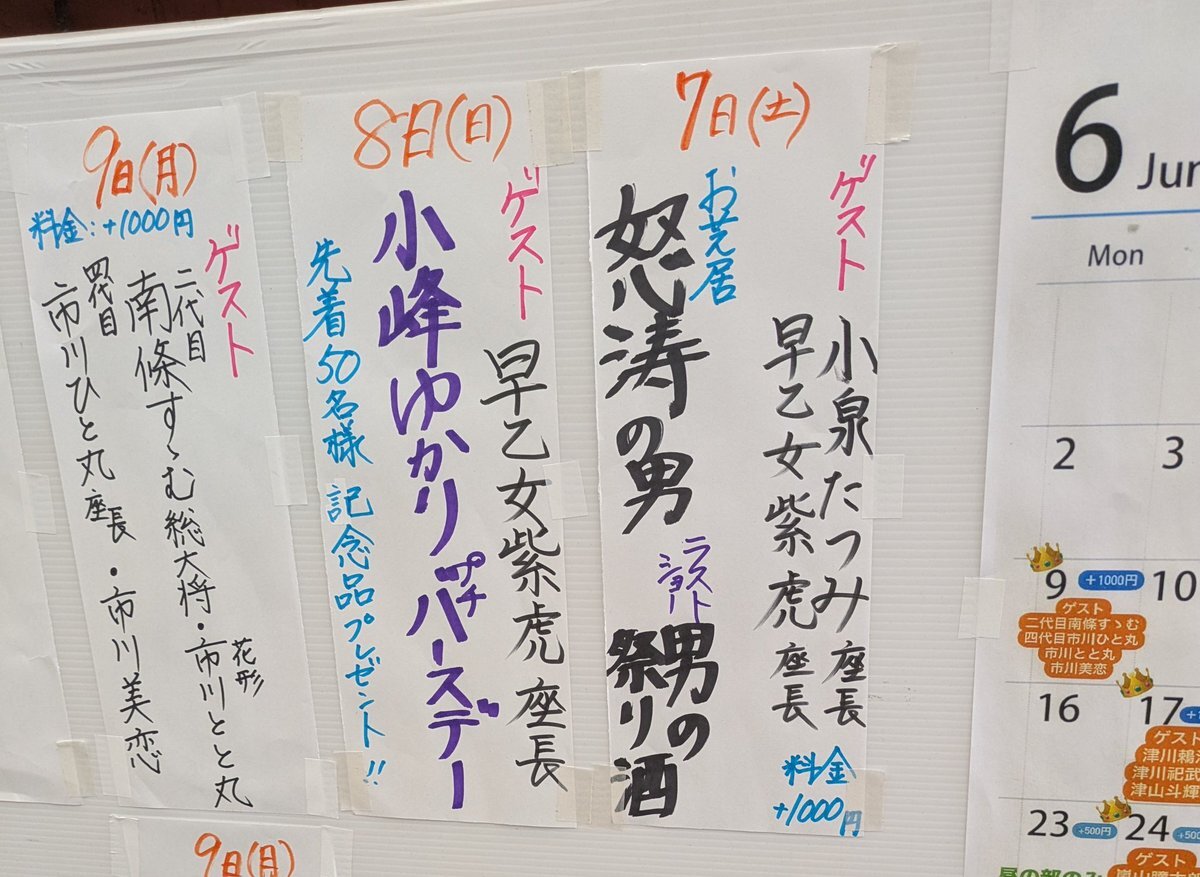 7日(土)
ゲスト
小泉たつみ座長
早乙女紫虎座長
料金
+1000円
お芝居
怒涛の男
ラスト
ショー
男の
祭り酒
8日(日)
ゲスト
早乙女紫虎座長
小峰ゆかりプチバースデー
先着50名様 記念品プレゼント!!
9日(月)
料金:+1000円
ゲスト
二代目
南條すゝむ総大将・花形
市川とと丸
四代目
市川ひと丸座長・市川美恋
9日(月)
6
Mon
2
3
9
+1000円
ゲスト
二代目南條すゝむ
四代目市川ひと丸
市川とと丸
市川美恋
10
16
17
ゲスト
津川鵣
津川祀武
津山斗輝
23
+500円
24
+500
ゲスト
昼の部のみ